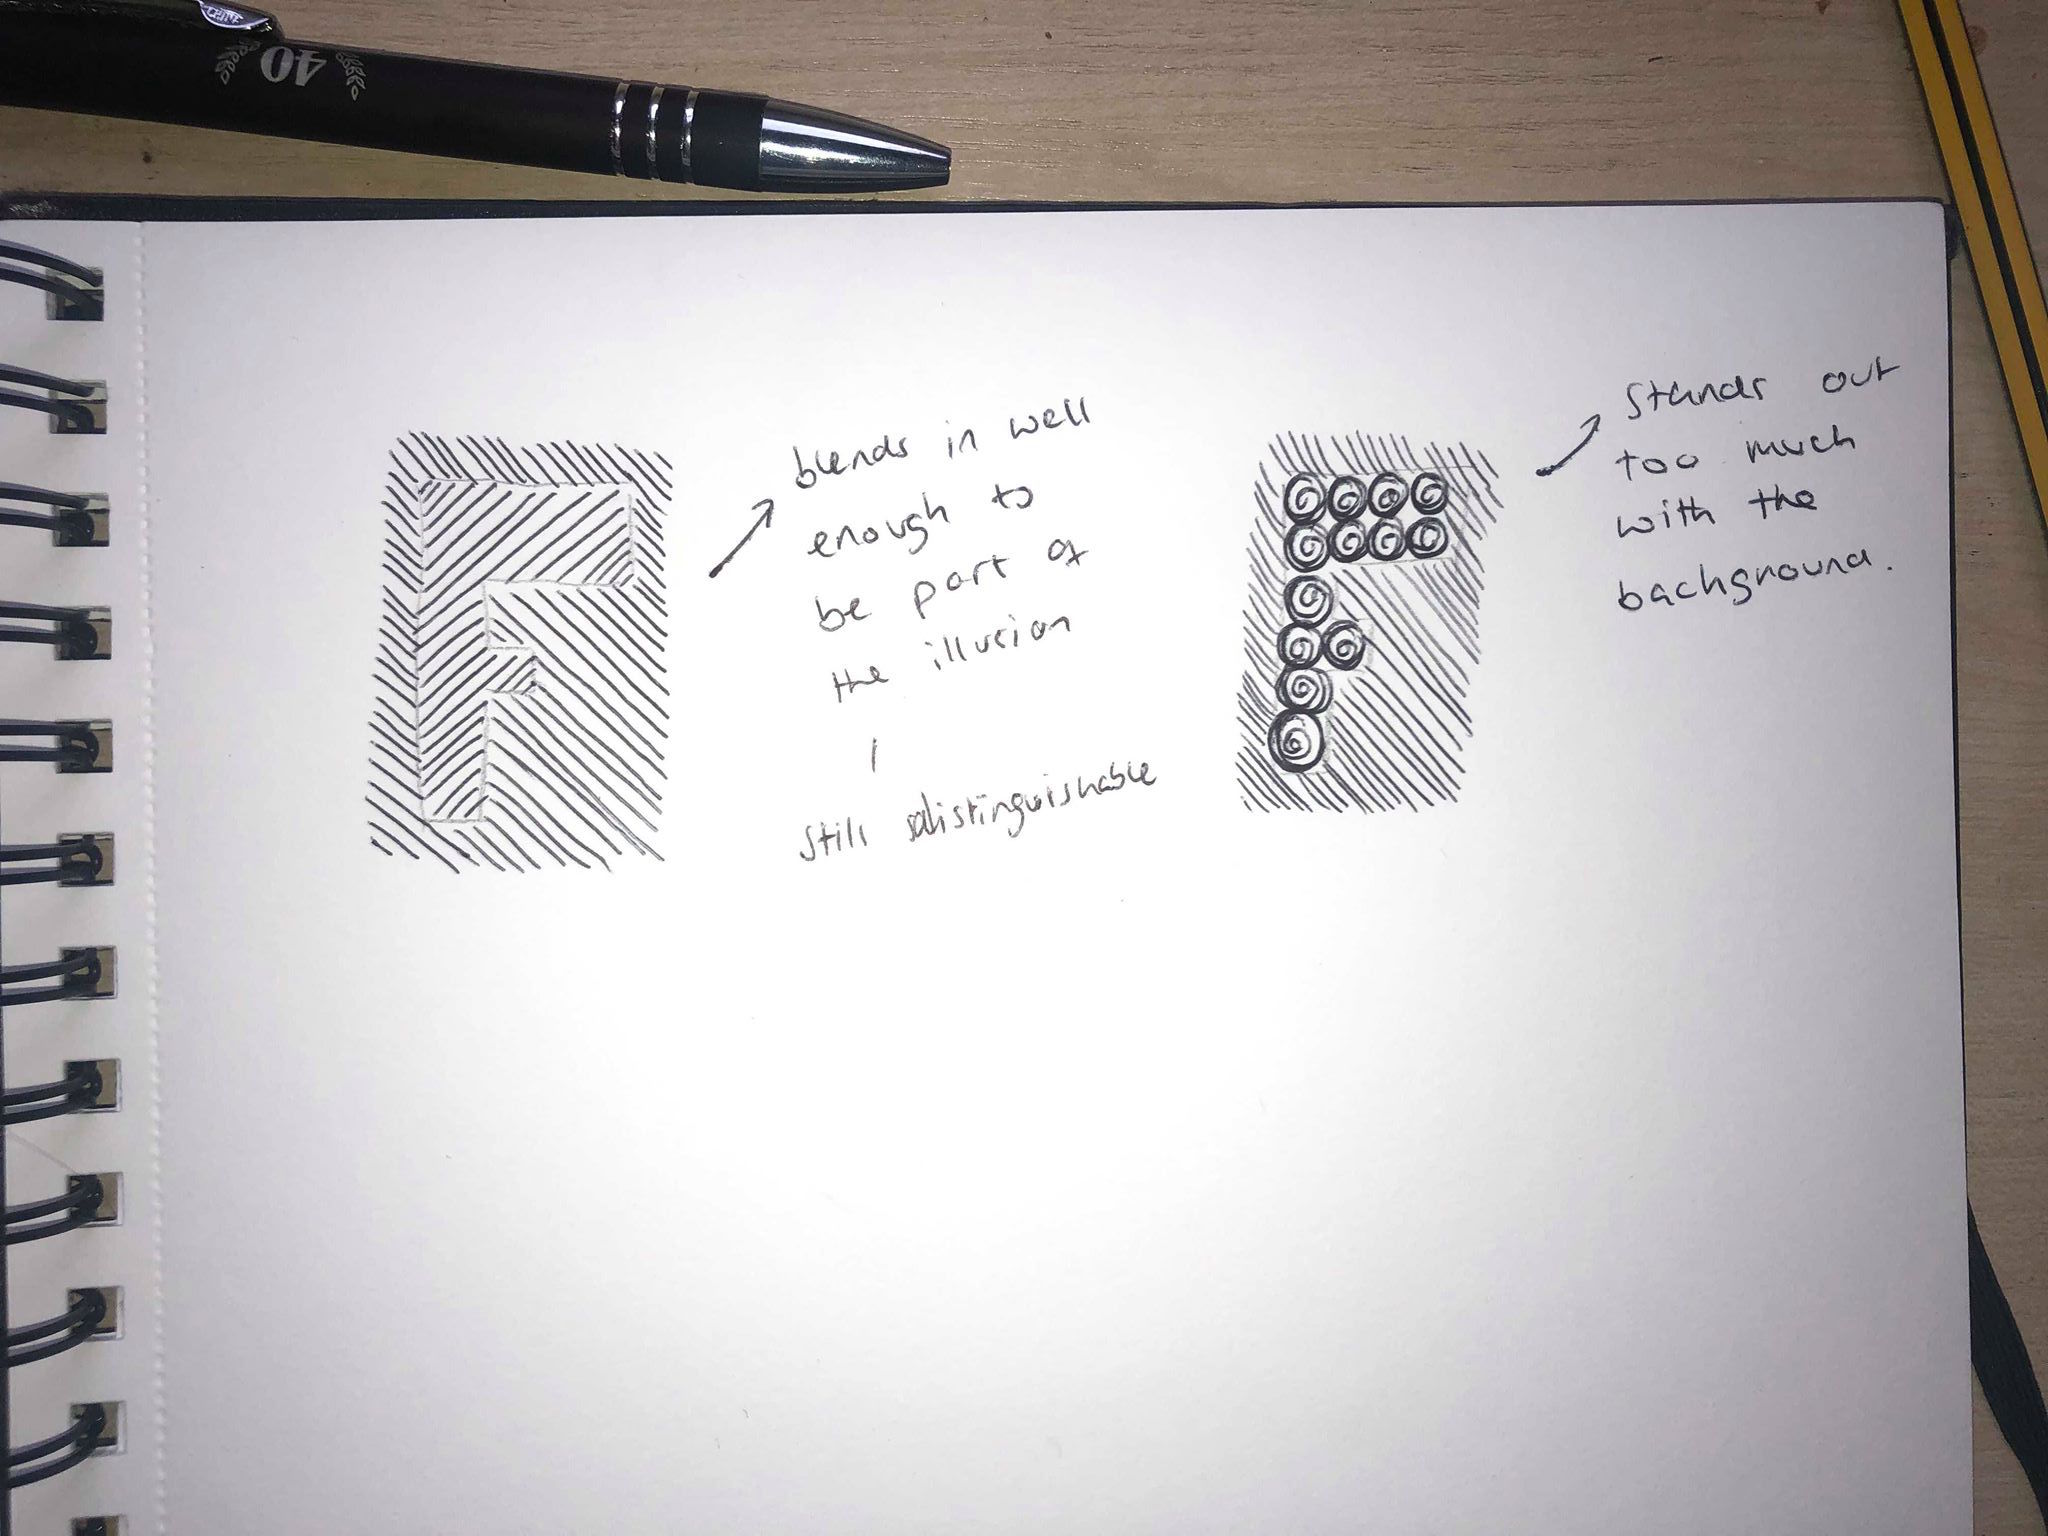 40
blends in well
enough to
be part of
the illusion
still distinguishable
Stands out
too much
with the
background.